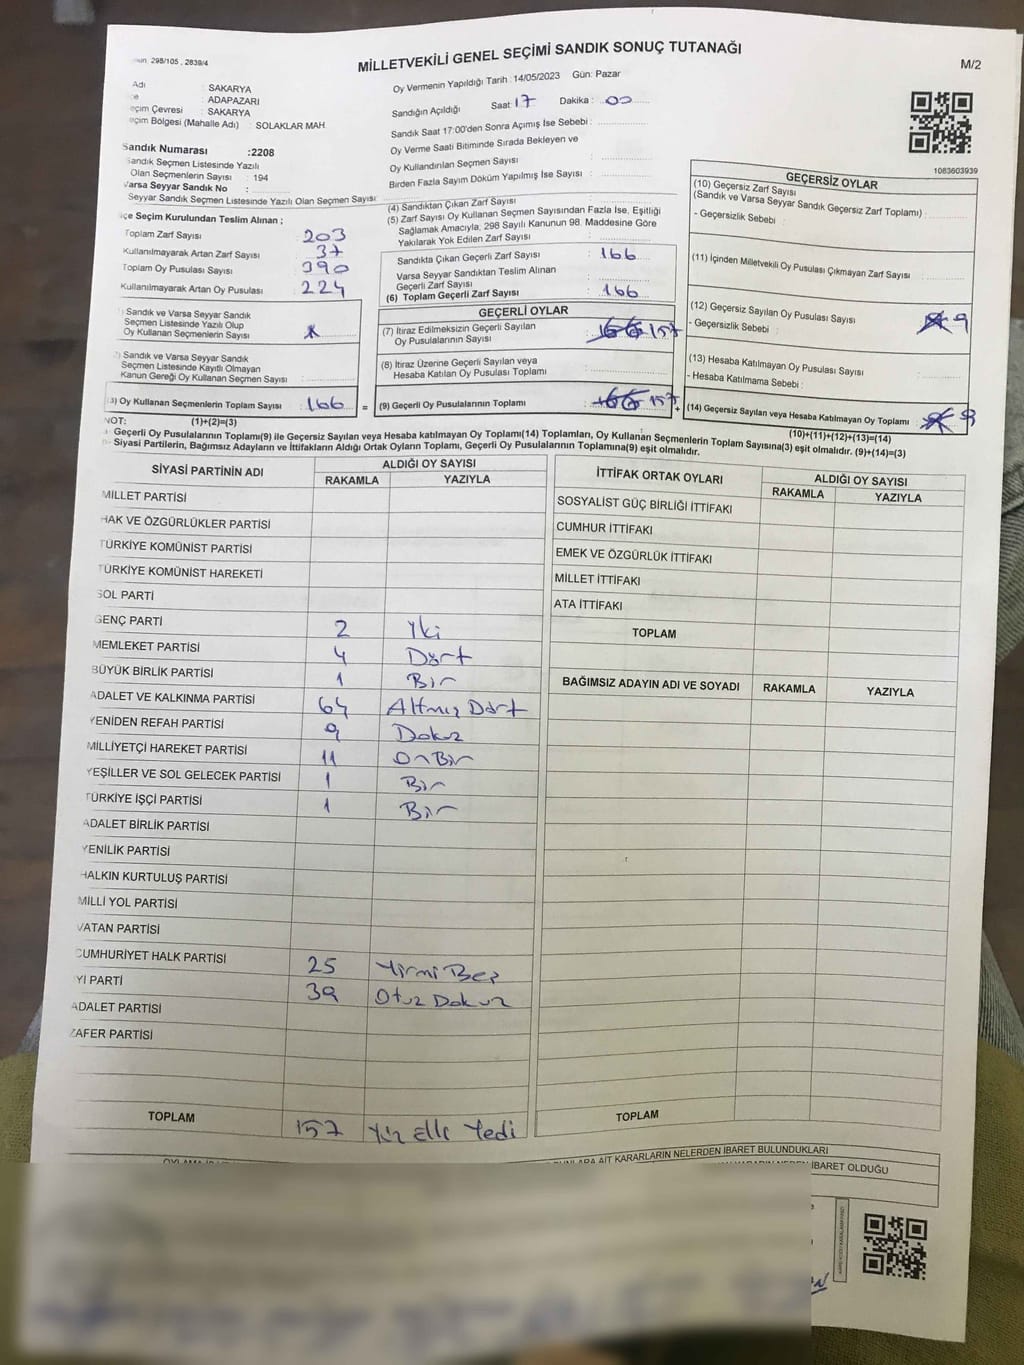 298/105 , 2839/4
MİLLETVEKİLİ GENEL SEÇİMİ SANDIK SONUÇ TUTANAĞI
M/2
Adı : SAKARYA
: ADAPAZARI
Seçim Çevresi : SAKARYA
Seçim Bölgesi (Mahalle Adı) : SOLAKLAR MAH
Oy Vermenin Yapıldığı Tarih :14/05/2023 Gün: Pazar
Sandığın Açıldığı Saat: 17 Dakika : 00
Sandık Saat 17:00'den Sonra Açımış İse Sebebi :
Oy Verme Saati Bitiminde Sırada Bekleyen ve
Oy Kullandırılan Seçmen Sayısı :
Birden Fazla Sayım Döküm Yapılmış İse Sayısı :
1083603939
Sandık Numarası :2208
Sandık Seçmen Listesinde Yazılı
Olan Seçmenlerin Sayısı : 194
Varsa Seyyar Sandık No :
Seyyar Sandık Seçmen Listesinde Yazılı Olan Seçmen Sayısı :
İlçe Seçim Kurulundan Teslim Alınan ;
Toplam Zarf Sayısı : 203
Kullanılmayarak Artan Zarf Sayısı : 37
Toplam Oy Pusulası Sayısı : 390
Kullanılmayarak Artan Oy Pusulası : 224
(4) Sandıktan Çıkan Zarf Sayısı :
(5) Zarf Sayısı Oy Kullanan Seçmen Sayısından Fazla İse, Eşitliği
Sağlamak Amacıyla, 298 Sayılı Kanunun 98. Maddesine Göre
Yakılarak Yok Edilen Zarf Sayısı :
Sandıkta Çıkan Geçerli Zarf Sayısı : 166
Varsa Seyyar Sandıktan Teslim Alınan
Geçerli Zarf Sayısı :
(6) Toplam Geçerli Zarf Sayısı : 166
1) Sandık ve Varsa Seyyar Sandık
Seçmen Listesinde Yazılı Olup
Oy Kullanan Seçmenlerin Sayısı :
2) Sandık ve Varsa Seyyar Sandık
Seçmen Listesinde Kayıtlı Olmayan
Kanun Gereği Oy Kullanan Seçmen Sayısı :
3) Oy Kullanan Seçmenlerin Toplam Sayısı : 166 =
GEÇERLİ OYLAR
(7) İtiraz Edilmeksizin Geçerli Sayılan
Oy Pusulalarının Sayısı : 166 157
(8) İtiraz Üzerine Geçerli Sayılan veya
Hesaba Katılan Oy Pusulası Toplamı :
(9) Geçerli Oy Pusulalarının Toplamı : 166 157 +
GEÇERSİZ OYLAR
(10) Geçersiz Zarf Sayısı
(Sandık ve Varsa Seyyar Sandık Geçersiz Zarf Toplamı) :
- Geçersizlik Sebebi :
(11) İçinden Milletvekili Oy Pusulası Çıkmayan Zarf Sayısı :
(12) Geçersiz Sayılan Oy Pusulası Sayısı : 9
- Geçersizlik Sebebi :
(13) Hesaba Katılmayan Oy Pusulası Sayısı :
- Hesaba Katılmama Sebebi :
(14) Geçersiz Sayılan veya Hesaba Katılmayan Oy Toplamı : 9
NOT: (1)+(2)=(3) (10)+(11)+(12)+(13)=(14)
Geçerli Oy Pusulalarının Toplamı(9) ile Geçersiz Sayılan veya Hesaba katılmayan Oy Toplamı(14) Toplamları, Oy Kullanan Seçmenlerin Toplam Sayısına(3) eşit olmalıdır. (9)+(14)=(3)
Siyasi Partilerin, Bağımsız Adayların ve İttifakların Aldığı Ortak Oyların Toplamı, Geçerli Oy Pusulalarının Toplamına(9) eşit olmalıdır.
SİYASİ PARTİNİN ADI ALDIĞI OY SAYISI
RAKAMLA YAZIYLA
MİLLET PARTİSİ
HAK VE ÖZGÜRLÜKLER PARTİSİ
TÜRKİYE KOMÜNİST PARTİSİ
TÜRKİYE KOMÜNİST HAREKETİ
SOL PARTİ
GENÇ PARTİ 2 İki
MEMLEKET PARTİSİ 4 Dört
BÜYÜK BİRLİK PARTİSİ 1 Bir
ADALET VE KALKINMA PARTİSİ 64 Altmış Dört
YENİDEN REFAH PARTİSİ 9 Dokuz
MİLLİYETÇİ HAREKET PARTİSİ 11 OnBir
YEŞİLLER VE SOL GELECEK PARTİSİ 1 Bir
TÜRKİYE İŞÇİ PARTİSİ 1 Bir
ADALET BİRLİK PARTİSİ
YENİLİK PARTİSİ
HALKIN KURTULUŞ PARTİSİ
MİLLİ YOL PARTİSİ
VATAN PARTİSİ
CUMHURİYET HALK PARTİSİ 25 Yirmi Beş
İYİ PARTİ 39 Otuz Dokuz
ADALET PARTİSİ
ZAFER PARTİSİ
TOPLAM 157 Yüz Elli Yedi
İTTİFAK ORTAK OYLARI ALDIĞI OY SAYISI
RAKAMLA YAZIYLA
SOSYALİST GÜÇ BİRLİĞİ İTTİFAKI
CUMHUR İTTİFAKI
EMEK VE ÖZGÜRLÜK İTTİFAKI
MİLLET İTTİFAKI
ATA İTTİFAKI
TOPLAM
BAĞIMSIZ ADAYIN ADI VE SOYADI RAKAMLA YAZIYLA
TOPLAM
AİT KARARLARIN NELERDEN İBARET BULUNDUKLARI
İBARET OLDUĞU